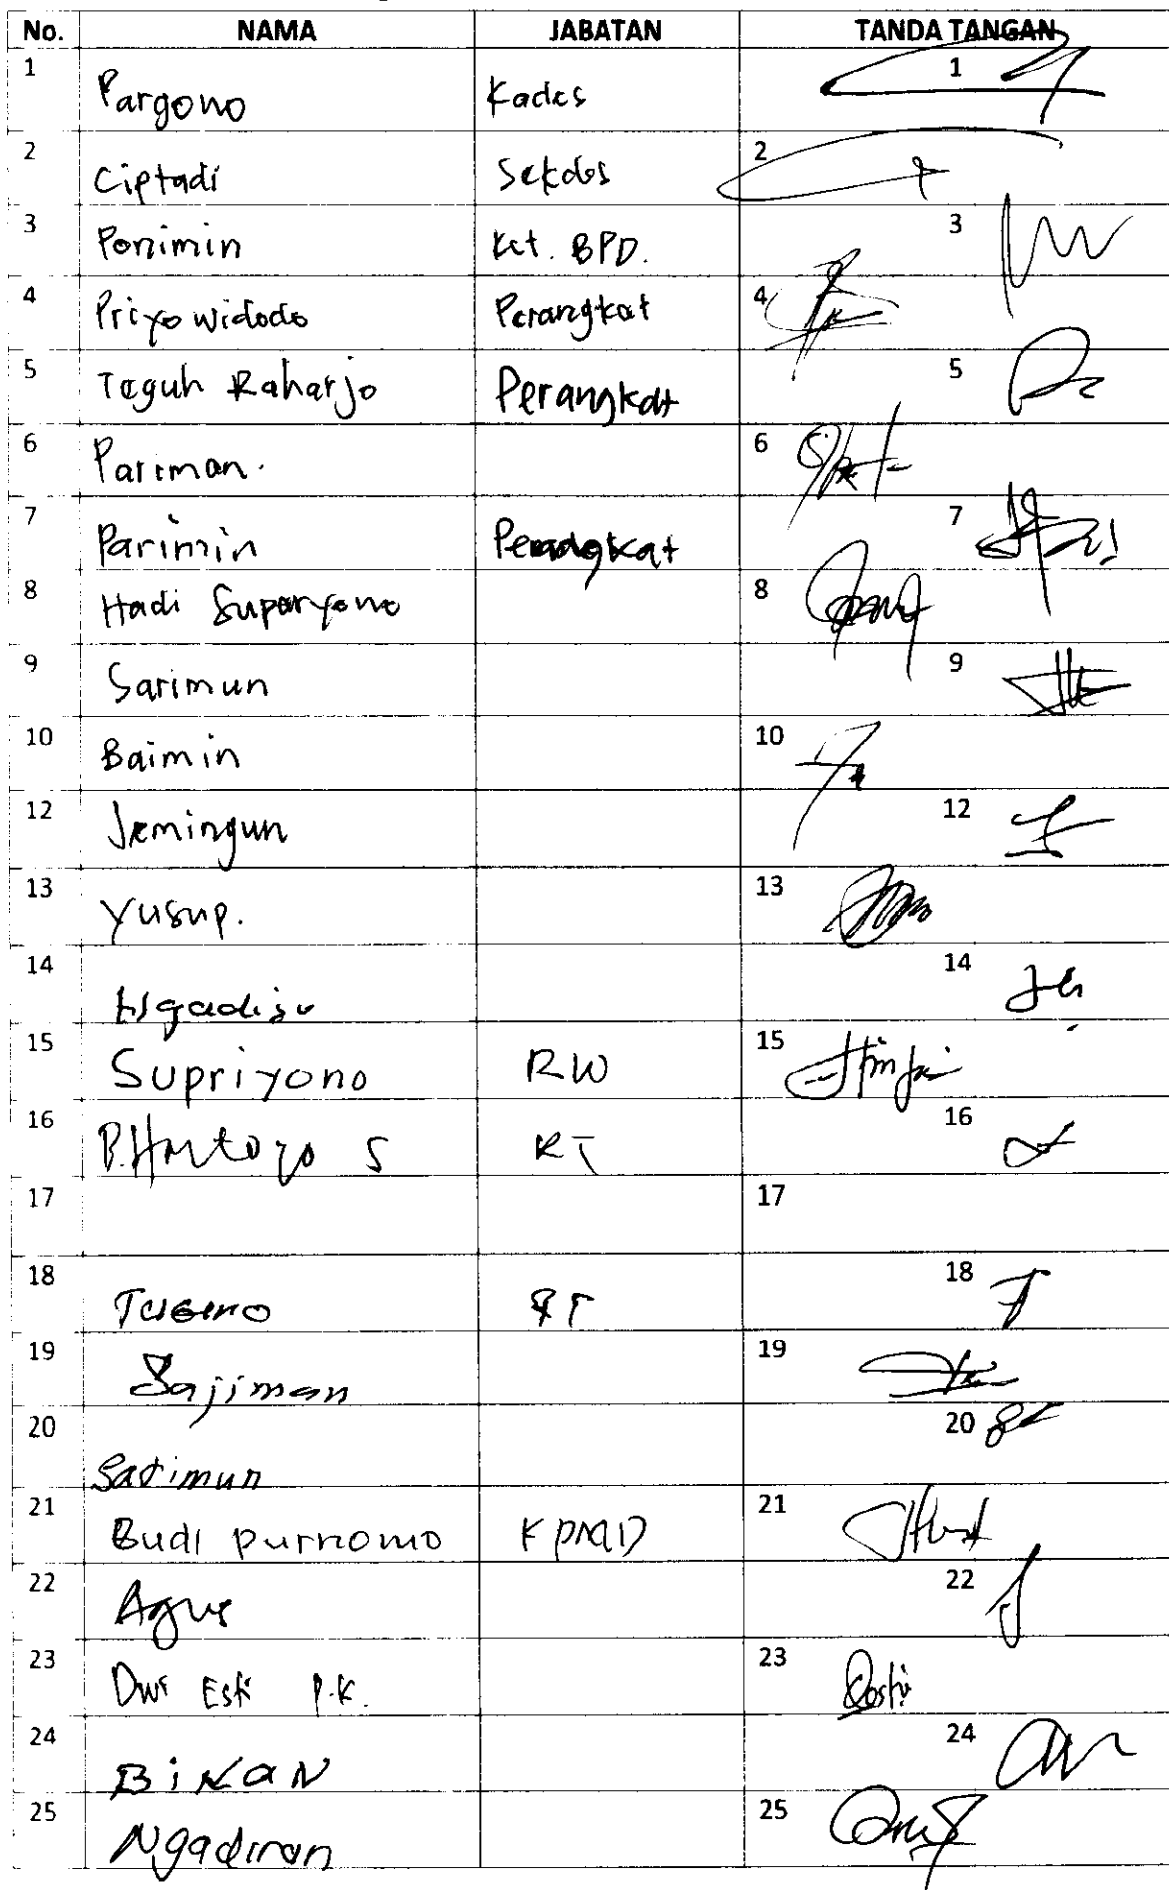 No. NAMA JABATAN TANDA TANGAN
1 Pargono Kades 1
2 Ciptadi Sekdes 2
3 Ponimin Ket. BPD. 3
4 Priyo widodo Perangkat 4
5 Teguh Raharjo Perangkat 5
6 Pariman. 6
7 Parimin Perangkat 7
8 Hadi Suparyono 8
9 Sarimun 9
10 Baimin 10
12 Jemingun 12
13 Yusup. 13
14 14
15 Supriyono RW 15
16 P.Hartoyo S RT 16
17 17
18 RT 18
19 Sajiman 19
20 Satimun 20
21 Budi purnomo KPMD 21
22 Agus 22
23 Dwi Esti P.K. 23
24 BiKAN 24
25 Ngadiran 25